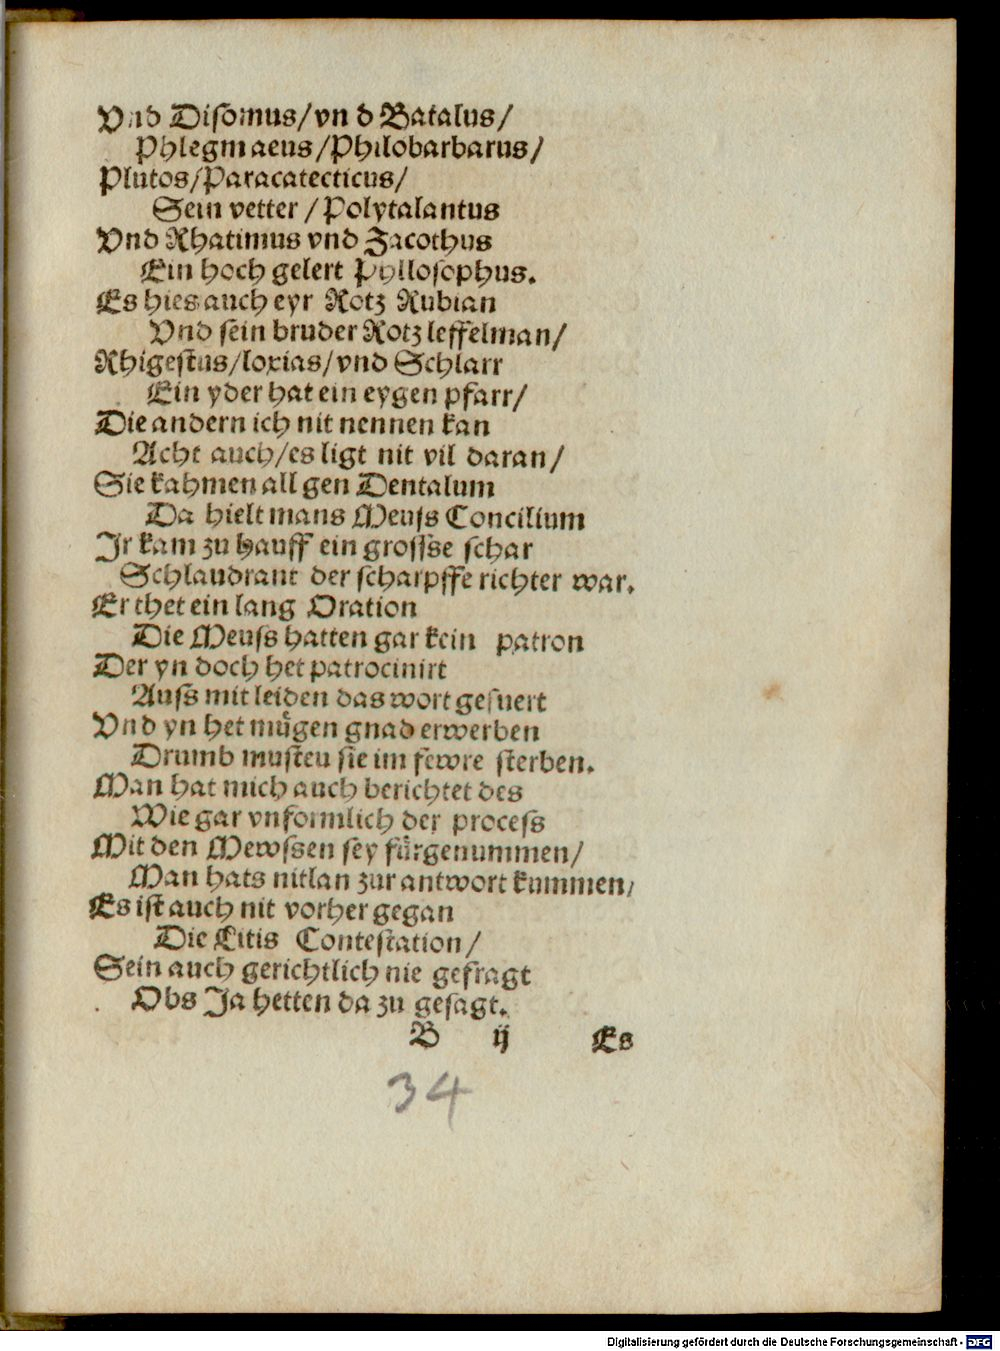 Vnd Disomus/vn d Batalus/
Phlegmaeus/Philobarbarus/
Plutos/Paracatecticus/
Sein vetter/Polytalantus
Vnd Rhatimus vnd Jacothus
Ein hoch gelert Pyllosophus.
Es hies auch eyr Rotz Rubian
Vnd sein bruder Rotz leffelman/
Rhigestus/loxias/vnd Schlarr
Ein yder hat ein eygen pfarr/
Die andern ich nit nennen kan
Acht auch/es ligt nit vil daran/
Sie kahmen all gen Dentalum
Da hielt mans Meuſs Concilium
Jr kam zu hauff ein groſsse schar
Schlaudrant der scharpffe richter war.
Er thet ein lang Oration
Die Meuſs hatten gar kein patron
Der yn doch het patrocinirt
Auſs mit leiden das wort gefuert
Vnd yn het muͤgen gnad erwerben
Drumb musteu sie im fewre sterben.
Man hat mich auch berichtet des
Wie gar vnformlich der proceſs
Mit den Mewſsen sey fuͤrgenummen/
Man hats nit lan zur antwort kummen/
Es ist auch nit vorher gegan
Die Litis Contestation/
Sein auch gerichtlich nie gefragt
Obs Ja hetten da zu gesagt.
B ij Es
34
Digitalisierung gefördert durch die Deutsche Forschungsgemeinschaft - DFG